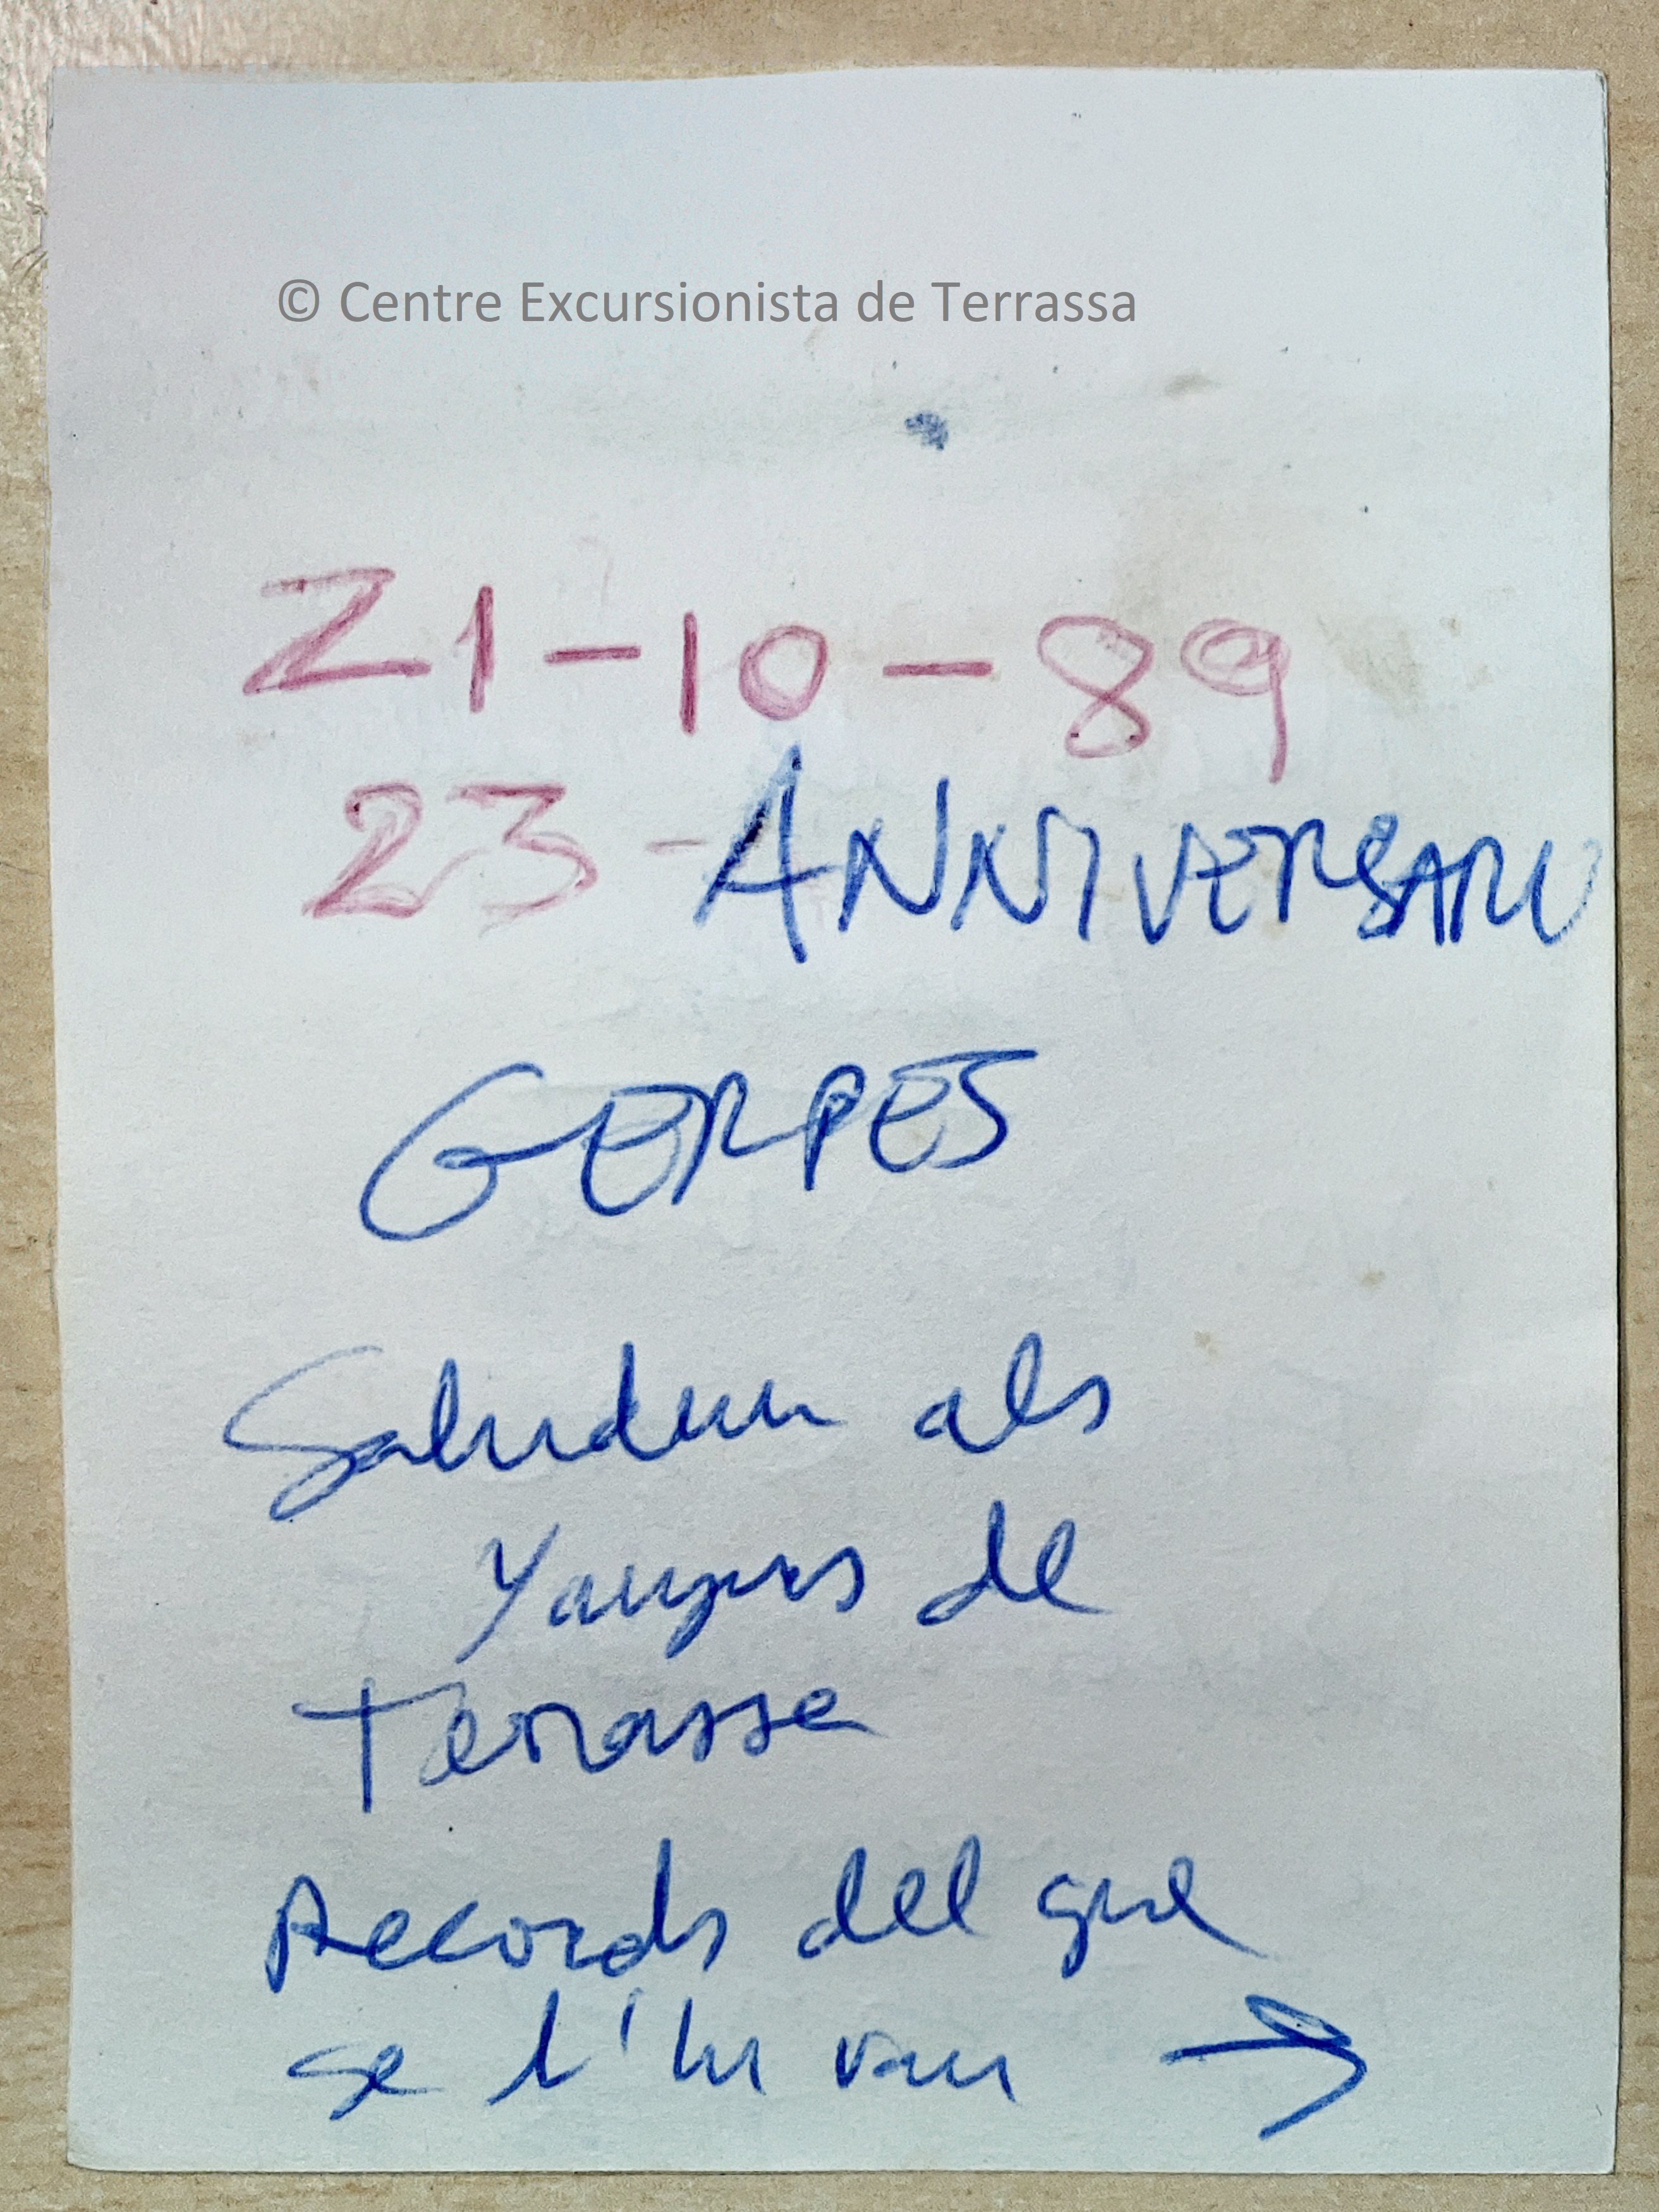 © Centre Excursionista de Terrassa
21-10-89
23 - ANNIVERSARI
GERPES
Saludem als
Yauyus de
Terrassa
Records del que
se l'hi van →